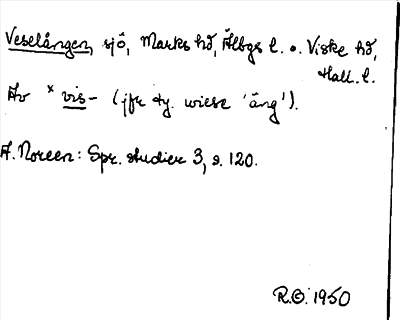 Veselången, sjö, Marks hd, Älvbgs l. o. Viske hd,
Hall. l.
Av *vis- (jfr ty. wiese 'äng').
A. Noreen: Spr. studier 3, s. 120.
R.O. 1950